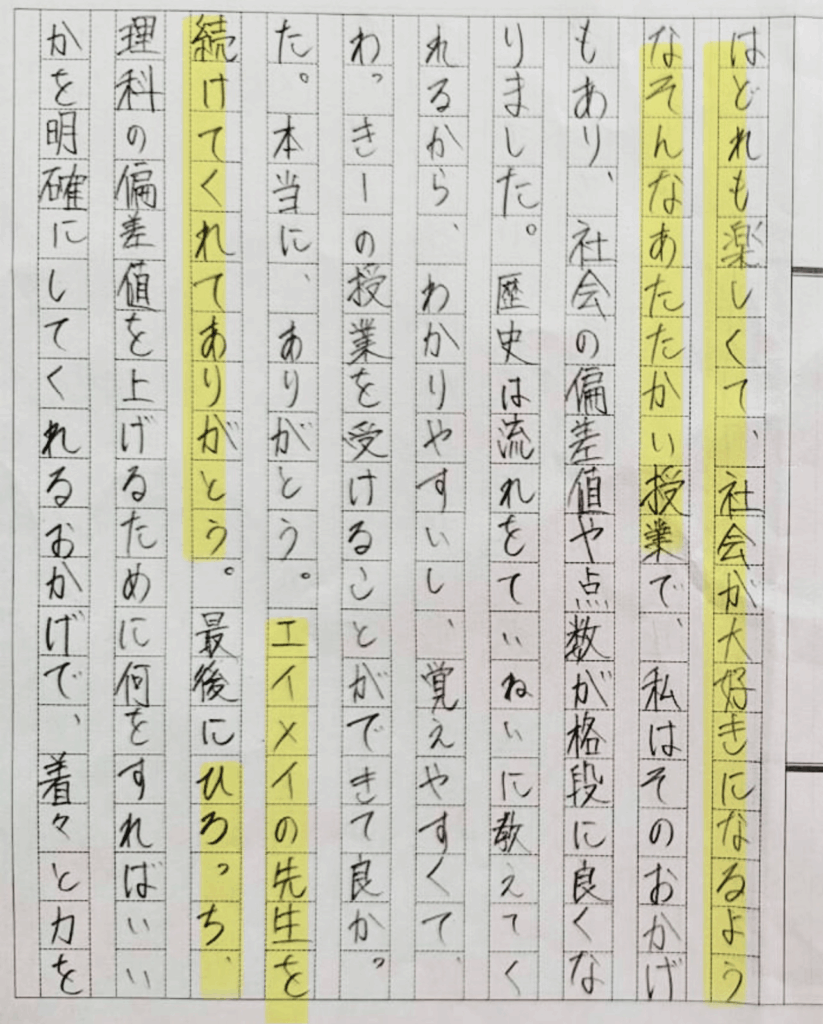 はどれも楽しくて、社会が大好きになるよう
なそんなあたたかい授業で、私はそのおかげ
もあり、社会の偏差値や点数が格段に良くな
りました。歴史は流れをていねいに教えてく
れるから、わかりやすいし、覚えやすくて、
わっきーの授業を受けることができて良かっ
た。本当に、ありがとう。エイメイの先生を
続けてくれてありがとう。最後にひろっち、
理科の偏差値を上げるために何をすればいい
かを明確にしてくれるおかげで、着々と力を